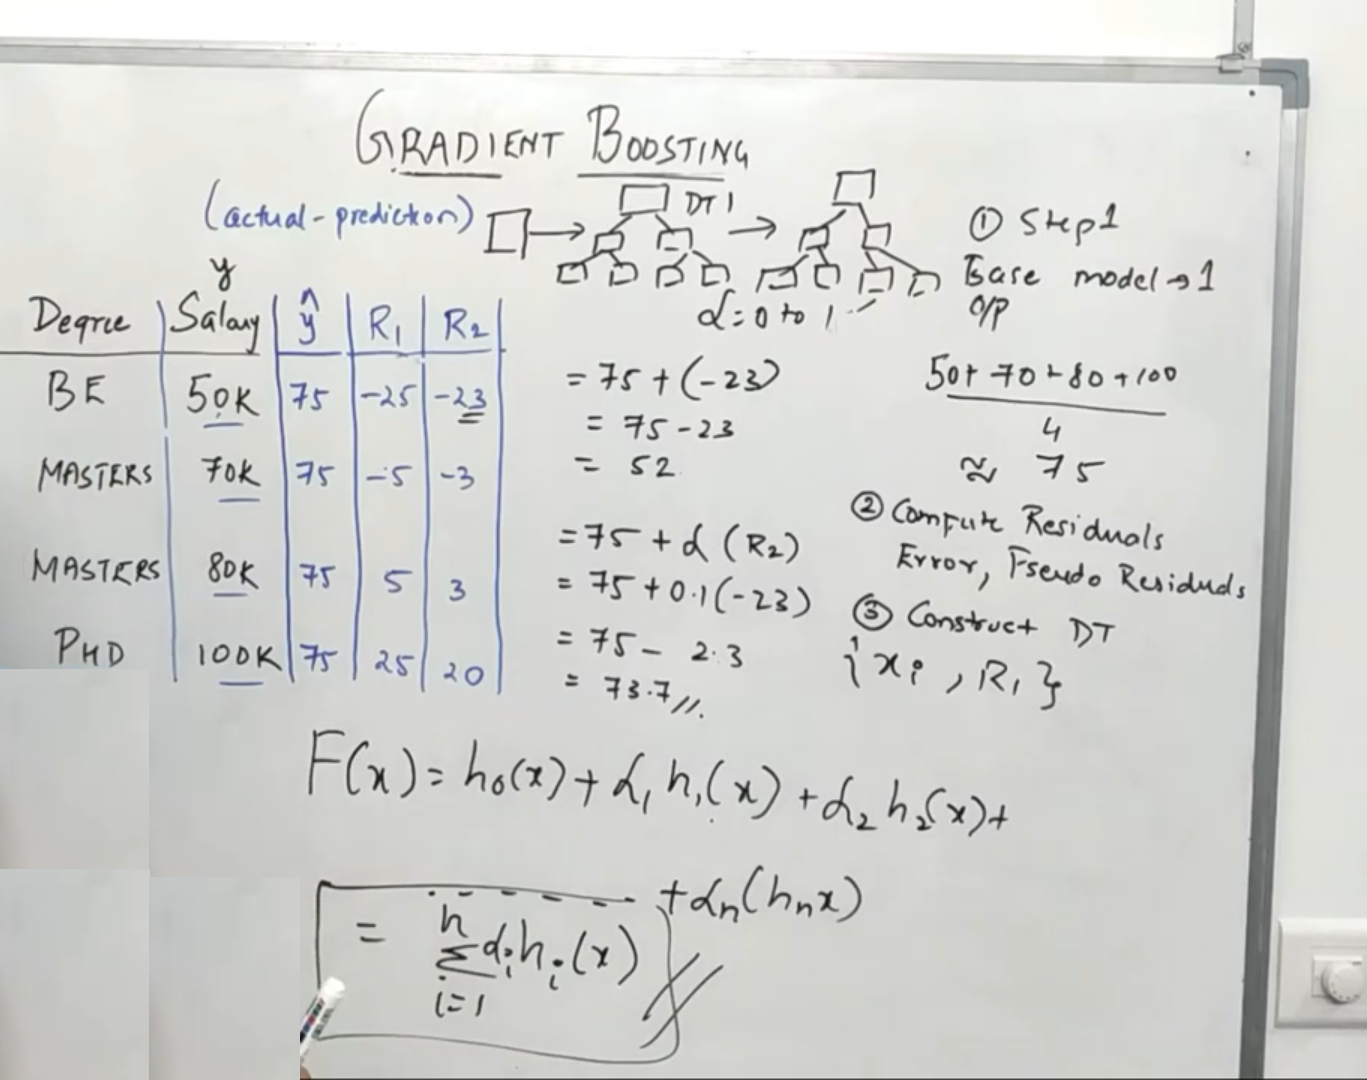 GRADIENT BOOSTING
(actual - prediction)
DT1
α = 0 to 1
y
Degree Salary ŷ R₁ R₂
BE 50K 75 -25 -23
MASTERS 70K 75 -5 -3
MASTERS 80K 75 5 3
PHD 100K 75 25 20
= 75 + (-23)
= 75 - 23
= 52
= 75 + α (R₂)
= 75 + 0.1 (-23)
= 75 - 2.3
= 73.7 //.
① Step 1
Base model → 1
O/P
50 + 70 + 80 + 100
4
≈ 75
② Compute Residuals
Error, Pseudo Residuals
③ Construct DT
{xi, R₁}
F(x) = h₀(x) + α₁ h₁(x) + α₂ h₂(x) +
- - - - - + αn(hnx)
n
= Σ αi hi(x)
i=1